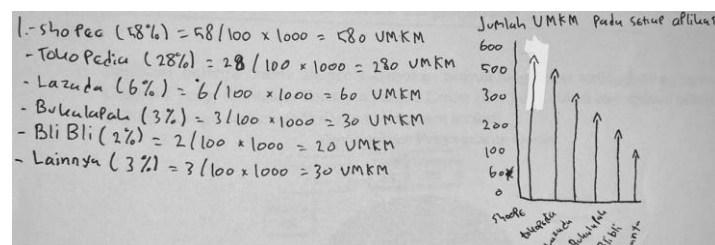 1.- Shopee (58%) = 58/100 x 1000 = 580 UMKM
- Tokopedia (28%) = 28/100 x 1000 = 280 UMKM
- Lazada (6%) = 6/100 x 1000 = 60 UMKM
- Bukalapak (3%) = 3/100 x 1000 = 30 UMKM
- BliBli (2%) = 2/100 x 1000 = 20 UMKM
- Lainnya (3%) = 3/100 x 1000 = 30 UMKM
Jumlah UMKM Pada setiap aplikas
600
500
300
200
100
60
0
Shopee
tokopedia
Bukalapak